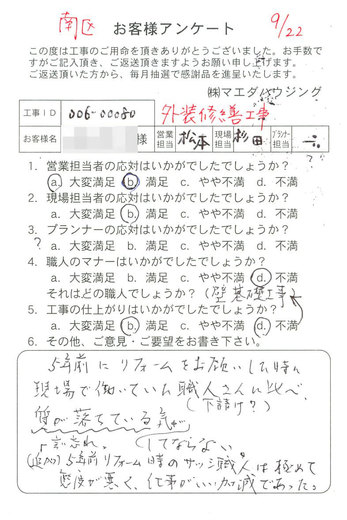 南区
お客様アンケート
9/22
この度は工事のご用命を頂きありがとうございました。お手数で
すがご記入頂き、ご返送頂きますようお願い申し上げます。
ご返送頂いた方から、毎月抽選で感謝品を進呈いたします。
㈱マエダハウジング
工事ID 006-00080 外装修繕工事
お客様名 様 営業担当 松本 現場担当 杉田 プランナー担当
1. 営業担当者の応対はいかがでしたでしょうか？
a. 大変満足 b. 満足 c. やや不満 d. 不満
2. 現場担当者の応対はいかがでしたでしょうか？
a. 大変満足 b. 満足 c. やや不満 d. 不満
3. プランナーの応対はいかがでしたでしょうか？
? a. 大変満足 b. 満足 c. やや不満 d. 不満
4. 職人のマナーはいかがでしたでしょうか？
a. 大変満足 b. 満足 c. やや不満 d. 不満
それはどの職人でしょうか？(壁基礎工事)
5. 工事の仕上がりはいかがでしたでしょうか？
a. 大変満足 b. 満足 c. やや不満 d. 不満
6. その他、ご意見・ご要望をお書き下さい。
5年前にリフォームをお願いした時に
現場で働いていた職人さんに比べ
(下請け？)
質が落ちている気が
してならない
言い忘れ。
(追加) 5年前リフォーム時のサッシ職人は極めて
態度が悪く、仕事がいい加減であった。